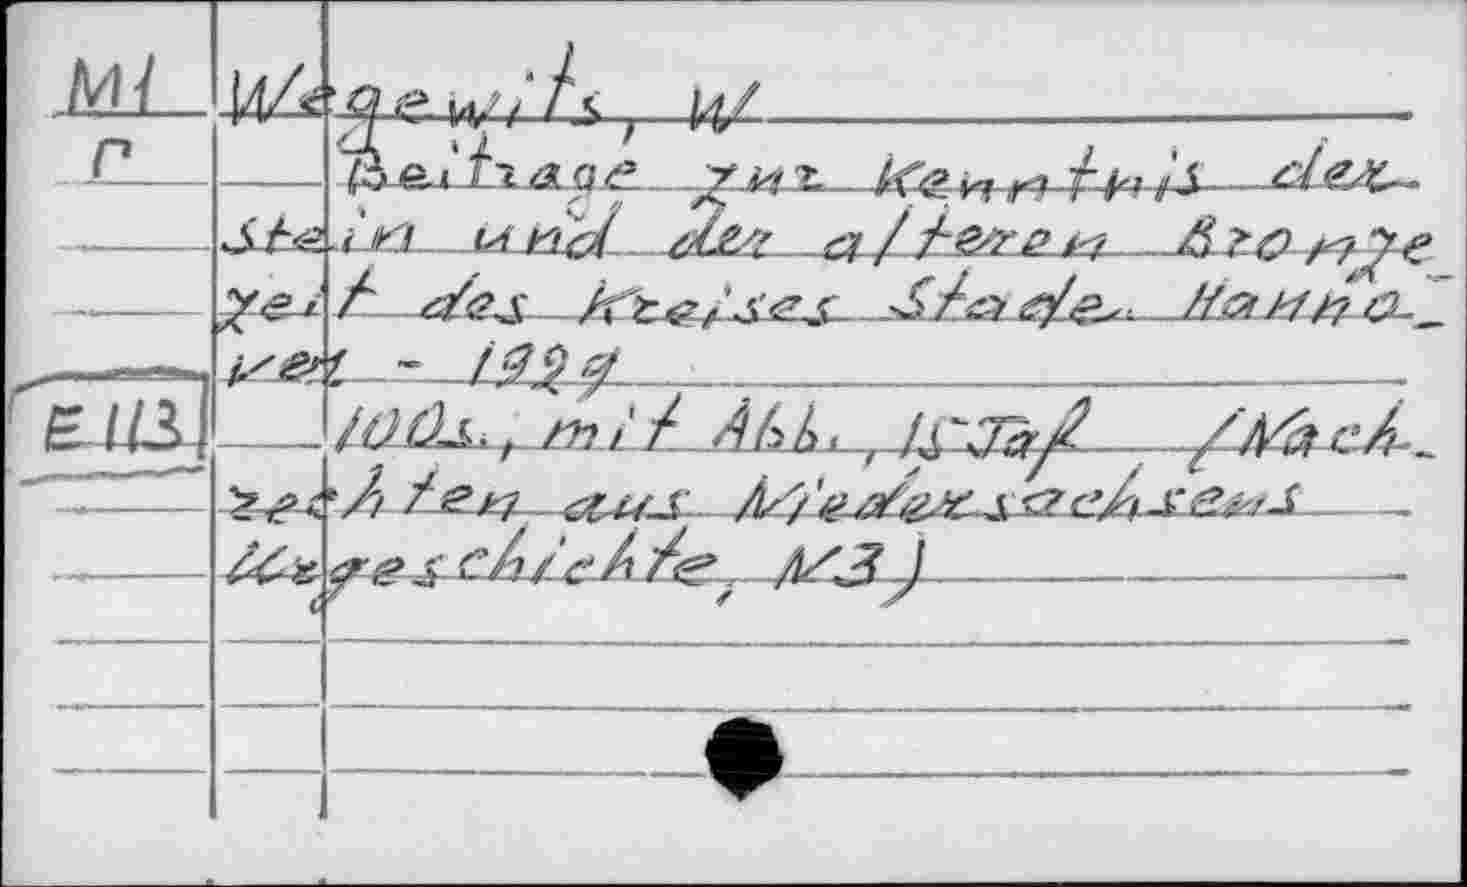 M1 Wegewits, W
r Beitrage zur Kenntnis der
Stein und der alteren Bronze
zeit des Kreises Stade. Hanno-
ver - 1929
E IIB 100s., mit Abb., 15 Taf (Nach-
rechten aus Niedersachsens
Urgeschichte, N3)